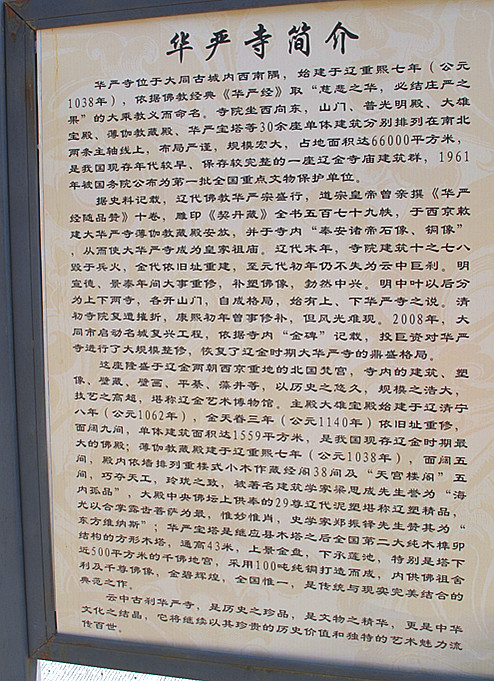 华严寺简介
华严寺位于大同古城内西南隅，始建于辽重熙七年（公元
1038年），依据佛教经典《华严经》取“慈悲之华，必结庄严之
果”的大乘教义而命名。寺院坐西向东，山门、普光明殿、大雄
宝殿、薄伽教藏殿、华严宝塔等30余座单体建筑分别排列在南北
两条主轴线上，布局严谨，规模宏大，占地面积达66000平方米，
是我国现存年代较早、保存较完整的一座辽金寺庙建筑群，1961
年被国务院公布为第一批全国重点文物保护单位。
据史料记载，辽代佛教华严宗盛行，道宗皇帝曾亲撰《华严
经随品赞》十卷，雕印《契丹藏》全书五百七十九帙，于西京敕
建大华严寺薄伽教藏殿安放，并于寺内“奉安诸帝石像、铜像”
，从而使大华严寺成为皇家祖庙。辽代末年，寺院建筑十之七八
毁于兵火，金代依旧址重建，至元代初年仍不失为云中巨刹。明
宣德、景泰年间大事重修，补塑佛像，勃然中兴。明中叶以后分
为上下两寺，各开山门，自成格局，始有上、下华严寺之说。清
初寺院复遭摧折，康熙初年曾事修补，但风光难现。2008年，大
同市启动名城复兴工程，依据寺内“金碑”记载，投巨资对华严
寺进行了大规模整修，恢复了辽金时期大华严寺的鼎盛格局。
这座隆盛于辽金两朝西京重地的北国梵宫，寺内的建筑、塑
像、壁藏、壁画、平棊、藻井等，以历史之悠久，规模之浩大，
技艺之高超，堪称辽金艺术博物馆。主殿大雄宝殿始建于辽清宁
八年（公元1062年），金天眷三年（公元1140年）依旧址重修，
面阔九间，单体建筑面积达1559平方米，是我国现存辽金时期最
大的佛殿；薄伽教藏殿建于辽重熙七年（公元1038年），面阔五
间，殿内依墙排列重楼式小木作藏经阁38间及“天宫楼阁”五
间，巧夺天工，玲珑之致，被著名建筑学家梁思成先生誉为“海
内孤品”，大殿中央佛坛上供奉的29尊辽代泥塑堪称辽塑精品，
尤以合掌露齿菩萨为最，惟妙惟肖，史学家郑振铎先生赞其为“
东方维纳斯”；华严宝塔是继应县木塔之后全国第二大纯木榫卯
结构的方形木塔，通高43米，上景金盘，下承莲池，特别是塔下
近500平方米的千佛地宫，采用100吨纯铜打造而成，内供佛祖舍
利及千尊佛像，金碧辉煌，全国惟一，是传统与现实完美结合的
典范之作。
云中古刹华严寺，是历史之珍品，是文物之精华，更是中华
文化之结晶，它将继续以其珍贵的历史价值和独特的艺术魅力流
传百世。